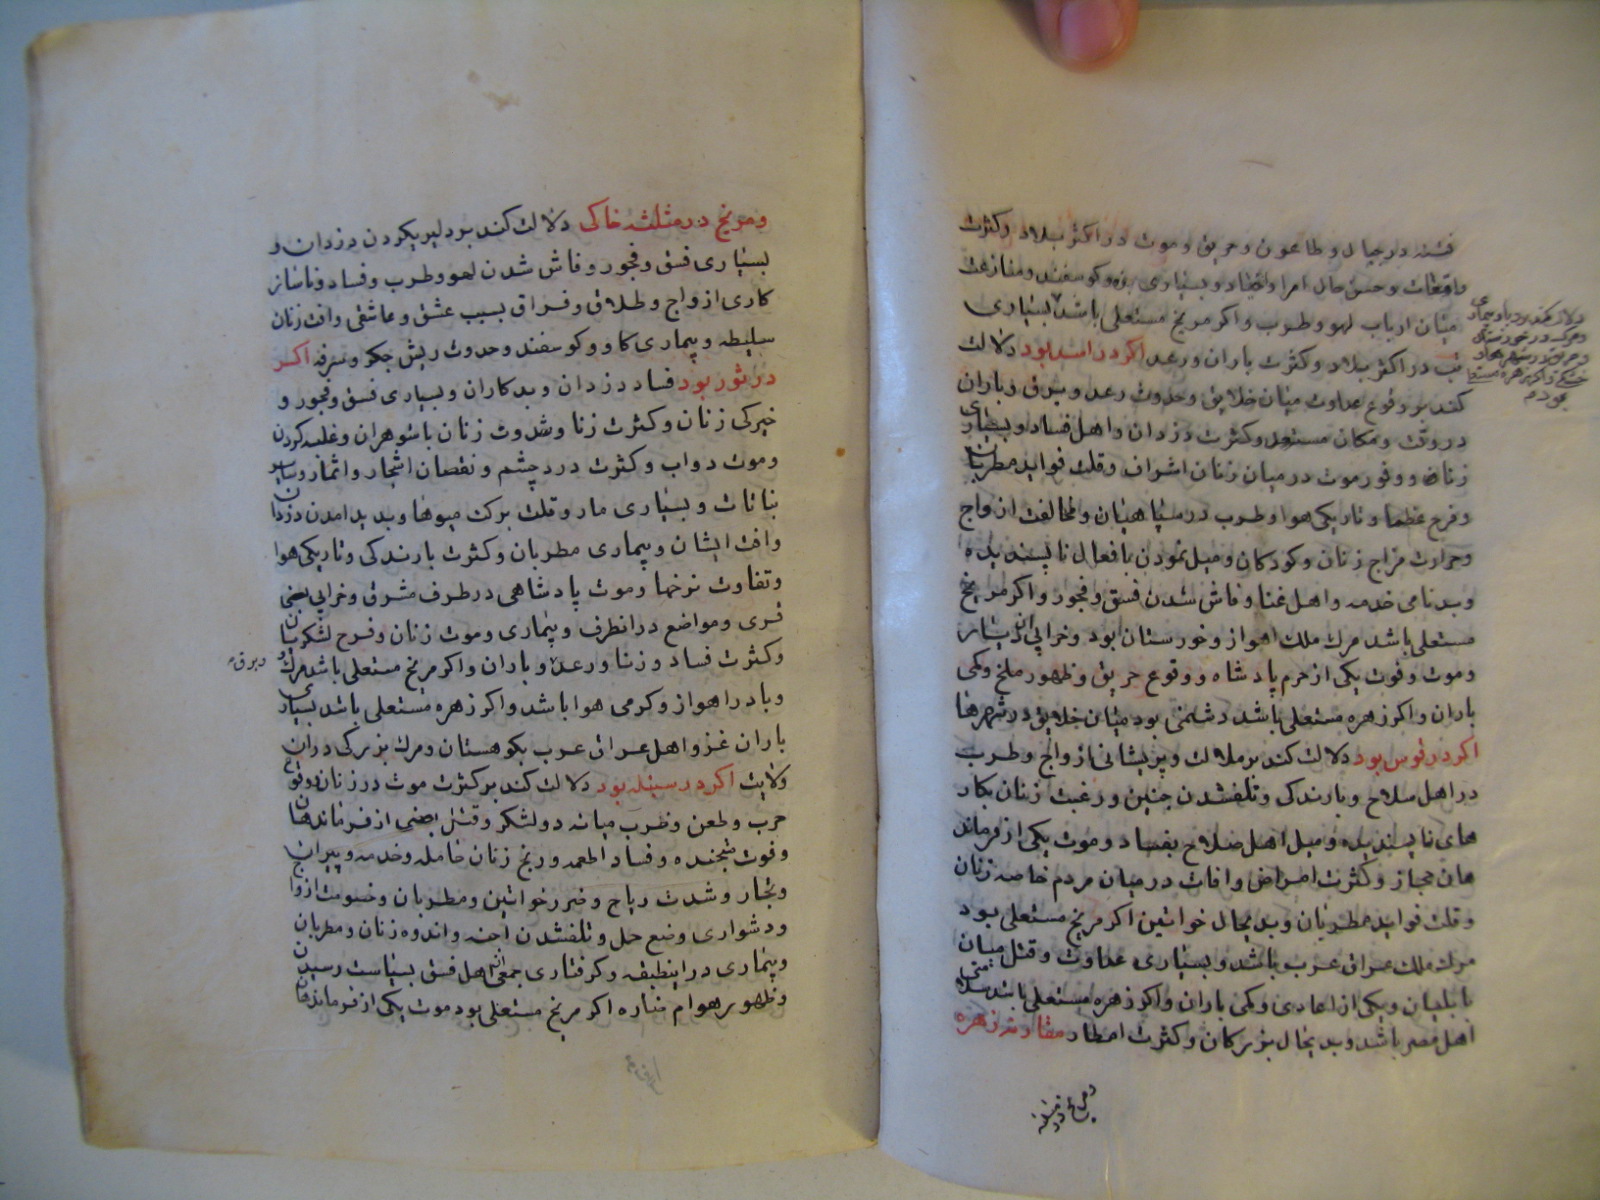 فتنه در جبال و طاعون و حریق و موت در اکثر بلاد و کثرت
و حسن حال امرا و بسیاری بره و کوسفند و منازعت
میان ارباب لهو و طرب و اکر مریخ مستعلی باشد بسیاری
تب در اکثر بلاد و کثرت باران و رعد اکر در اسد بود دلالت
کند بر وقوع عداوت میان خلایق و حدوث رعد و برق و باران
در وقت و مکان مستعد و کثرت دزدان و اهل فساد و بیماری
زنان و وفور موت در میان زنان اشراف و قلت فواید مطربان
و فرح عظما و تاریکی هوا و طرب در سپاهیان و مخالفت ازواج
و حرارت مزاج زنان و کودکان و میل نمودن بافعال ناپسندیده
و بدنامی خدمه و اهل غنا و فاش شدن فسق و فجور و اکر مریخ
مستعلی باشد مرك ملك اهواز و خورستان بود و خرابی
و موت و فوت یکی از حرم پادشاه و وقوع حریق و ظهور ملخ و کمی
باران و اکر زهره مستعلی باشد دشمنی بود میان خلایق در شهرها
اکر در قوس بود دلالت کند بر ملالت و پریشانی ازواج و طرب
در اهل سلاح و بارندکی و تلفشدن جنین و رغبت زنان بکار
های ناپسندیده و میل اهل صلاح بفساد و موت یکی از فرماند
هان حجاز و کثرت امراض و افات در میان مردم خاصه زنان
و قلت فواید مطربان و بدیحال خواتین اکر مریخ مستعلی بود
مرك ملك عراق عرب باشد و بسیاری عداوت و قتل میان
بابلیان و یکی از اعادی و کمی باران و اکر زهره مستعلی باشد
اهل مصر باشد و بدیحال بزرکان و کثرت امطار مقارنه زهره
و مریخ در مثلثه خاکی دلالت کند بر دلیریکردن دزدان و
بسیاری فسق و فجور و فاش شدن لهو و طرب و فساد و ناساز
کاری ازواج و طلاق و فراق بسبب عشق و عاشقی و افت زنان
سلیطه و بیماری کاو و کوسفند و حدوث ریش جکر و سرفه اکر
در ثور بود فساد دزدان و بدکاران و بسیاری فسق و فجور و
خیرکی زنان و کثرت زنا و زنان با شوهران و غلبه کردن
و موت دواب و کثرت درد چشم و نقصان اشجار و اثمار و سایر
نباتات و بسیاری مار و قلت برکت میوها و بدید امدن دزدان
و افت ایشان و بیماری مطربان و کثرت بارندکی و تاریکی هوا
و تفاوت نرخها و موت پادشاهی در طرف مشرق و خرابی بعضی
قری و مواضع در انطرف و بیماری و موت زنان و فرح لشکریان
و کثرت فساد و زنا و رعد و باران و اکر مریخ مستعلی باشد مرك
و با در اهواز و کرمی هوا باشد و اکر زهره مستعلی باشد بسیاری
باران غز و اهل عراق عرب بکوهستان و مرك بزرکی در ان
ولایت اکر در سنبله بود دلالت کند بر کثرت موت در زنان و وقوع
حرب و طعن و ضرب میانه دو لشکر و قتل بعضی از فرماندهان
و فوت و فساد اطعمه و رنج زنان حامله و خدمه و پیران
و تجار و شدت ریاح و ضرر خواتین و مطربان و خصومت ازواج
و دشواری وضع حمل و تلفشدن اجنه و اندوه زنان و مطربان
و بیماری در اینطبقه و کرفتاری جمعی از اهل فسق بسیاست رسیدن
و ظهور هوام مناره اکر مریخ مستعلی بود موت یکی از فرماندهان
و برق